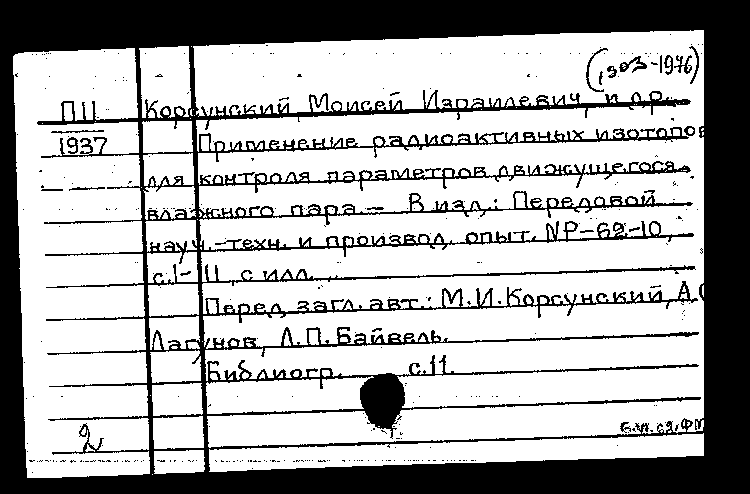 (1903-1976)
П11 Корсунский, Моисей Израилевич, и др.
1937 Применение радиоактивных изотопов
для контроля параметров движущегося
влажного пара.— В изд.: Передовой
науч.-техн. и производ. опыт. №Р-62-10,
с.1-11, с илл.
Перед загл. авт.: М.И.Корсунский, А.С
Лагунов, Л.П.Байвель.
Библиогр. с.11.
2